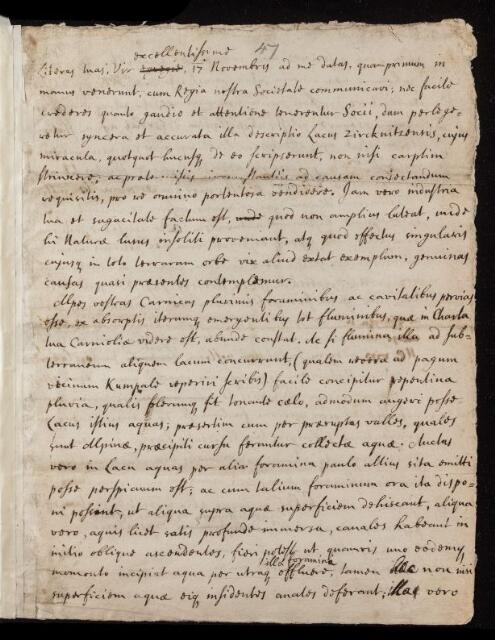 excellentissime 47
literas tuas, Vir 17 Novembris ad me datas, quam primum in
manus venerunt, cum Regia nostra Societate communicavi; nec facile
crederes quanto gaudio et attentione tenerentur Socii, dum perlege-
retur syncera et accurata illa descriptio Lacus Zircknitzensis, cujus
miracula, quotquot hucusq de eo scripserunt, non nisi carptim
strinxere, ac omissis circumstantiis ad causam consectandum
requisitis, pro re omnino portentosa vendidere. Jam vero industria
tua et sagacitate factum est, quod non amplius lateat, unde
hi Naturæ lusus insoliti proveniant, atq quod effectus singularis
cujusq in toto terrarum orbe vix aliud extat exemplum, genuinas
causas quasi præsentes contemplemur.
Alpes vestras Carnicas plurimis foraminibus ac cavitatibus pervias
esse, ex absorptis iterumq emergentibus tot fluminibus, quæ in Charta
tua Carnioliæ videre est, abunde constat. Ac si flumina illa ad sub-
terraneum aliquem lacum concurrant, (qualem revera ad pagum
vicinum Kumpale reperiri scribis) facile concipitur repentina
pluvia, qualis plerumq fit tonante cælo, admodum augeri posse
Lacus istius aquas; præsertim cum per præruptas valles, quales
sunt Alpinæ, præcipiti cursu ferantur collectæ aquæ. Auctas
vero in Lacu aquas per alia foramina paulo altius sita emitti
posse perspicuum est; ac cum talium foraminum ora ita dispo-
ni possint, ut aliqua supra aquæ superficiem dehiscant, aliqua
vero, aquis licet satis profunde immersa, canales habeant in
initio oblique ascendentes, fieri potest ut, quamvis uno eodemq
illa foramina
momento incipiat aqua per utraq effluere, tamen non nisi
superficiem aquæ eiq insidentes anates deferant; illac vero